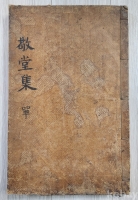 敬堂集 單